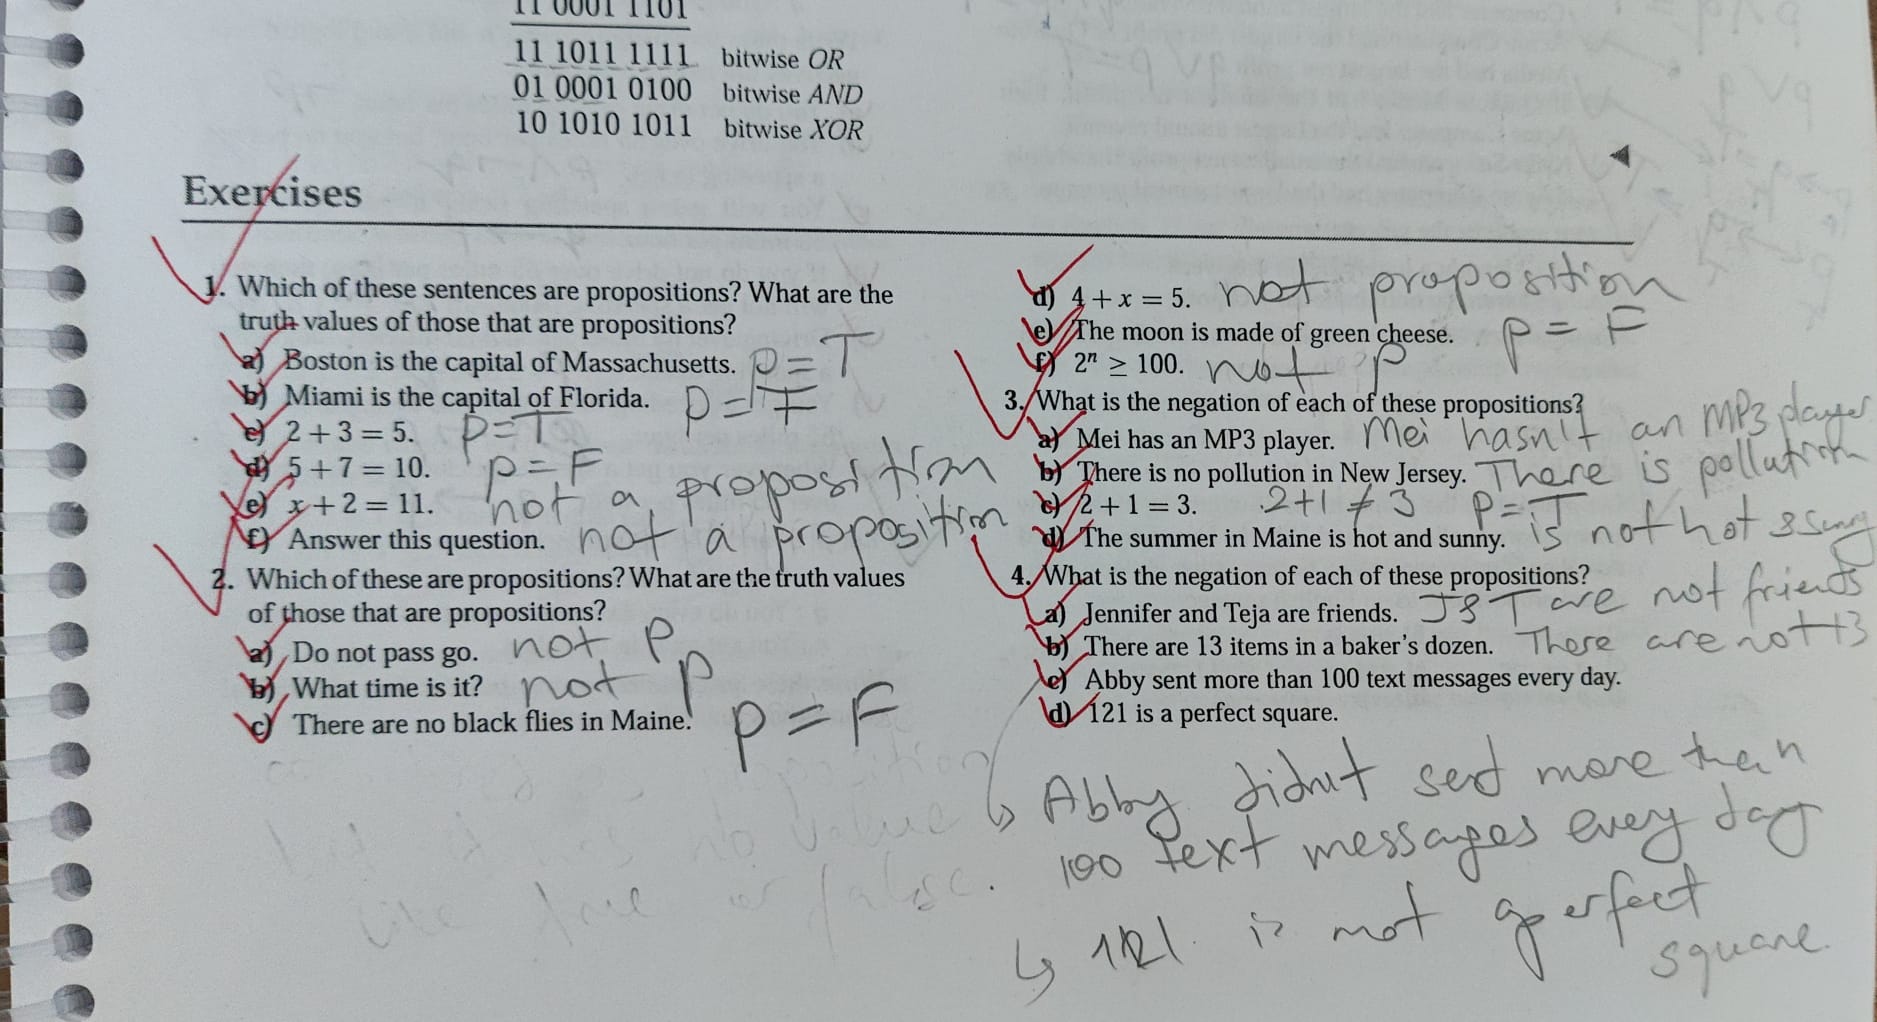 11 0001 1101
11 1011 1111 bitwise OR
01 0001 0100 bitwise AND
10 1010 1011 bitwise XOR
Exercises
1. Which of these sentences are propositions? What are the
truth values of those that are propositions?
a) Boston is the capital of Massachusetts. P = T
b) Miami is the capital of Florida. P = F
c) 2 + 3 = 5. P = T
d) 5 + 7 = 10. P = F
e) x + 2 = 11. not a proposition
f) Answer this question. not a proposition
2. Which of these are propositions? What are the truth values
of those that are propositions?
a) Do not pass go. not P
b) What time is it? not P
c) There are no black flies in Maine. P = F
d) 4 + x = 5. not proposition
e) The moon is made of green cheese. P = F
f) 2ⁿ ≥ 100. not P
3. What is the negation of each of these propositions?
a) Mei has an MP3 player. Mei hasn't an MP3 player
b) There is no pollution in New Jersey. There is pollution
c) 2 + 1 = 3. 2+1 ≠ 3 P = T
d) The summer in Maine is hot and sunny. is not hot & sunny
4. What is the negation of each of these propositions?
a) Jennifer and Teja are friends. J & T are not friends
b) There are 13 items in a baker's dozen. There are not 13
c) Abby sent more than 100 text messages every day.
d) 121 is a perfect square.
Abby didn't sent more than
100 text messages every day
121 is not a perfect
square.